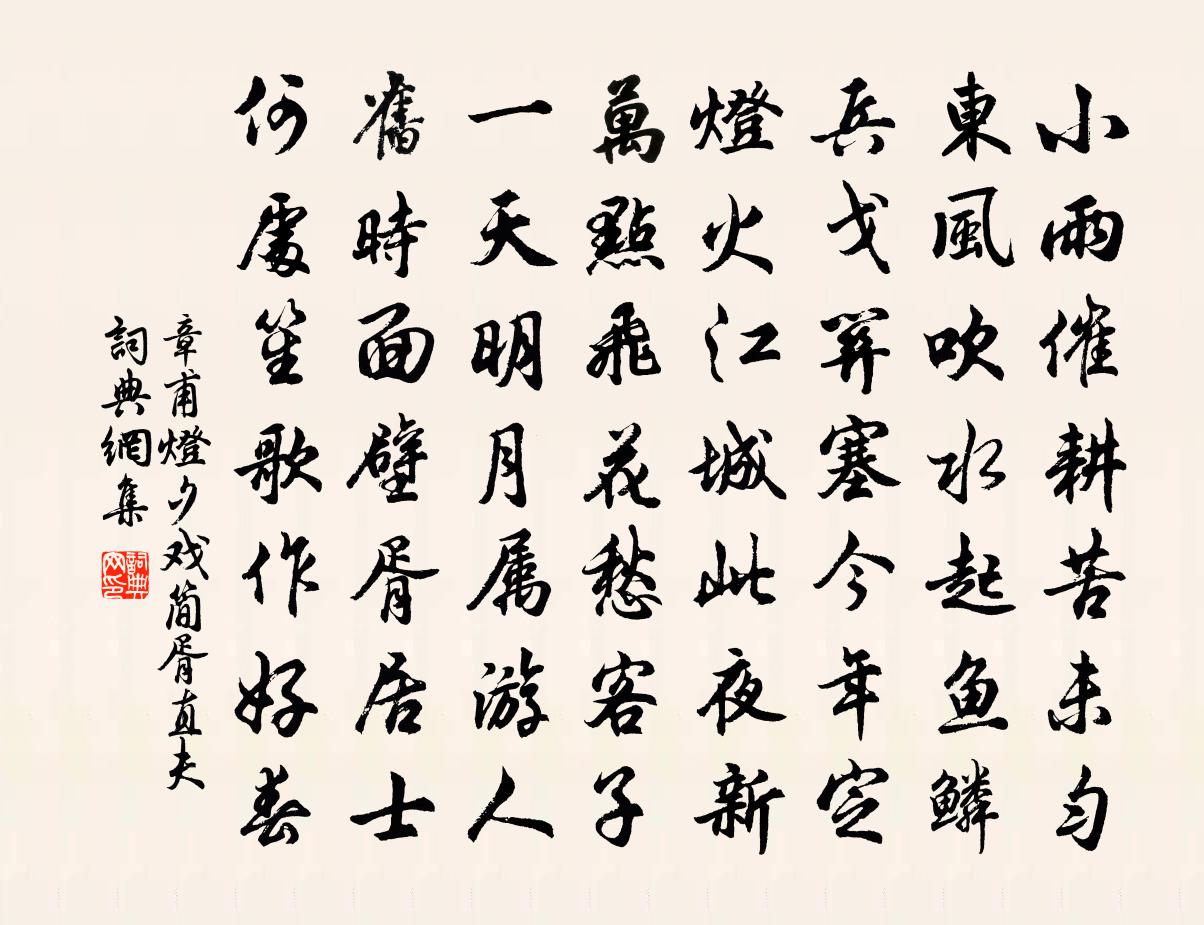 小雨催耕苦未勻
東風吹水起鱼鱗
兵戈關塞今年定
燈火江城此夜新
萬點飛花愁客子
一天明月属游人
舊時面壁胥居士
何處笙歌作好春
章甫燈夕戏简胥直夫
詞典網集
詞典网印